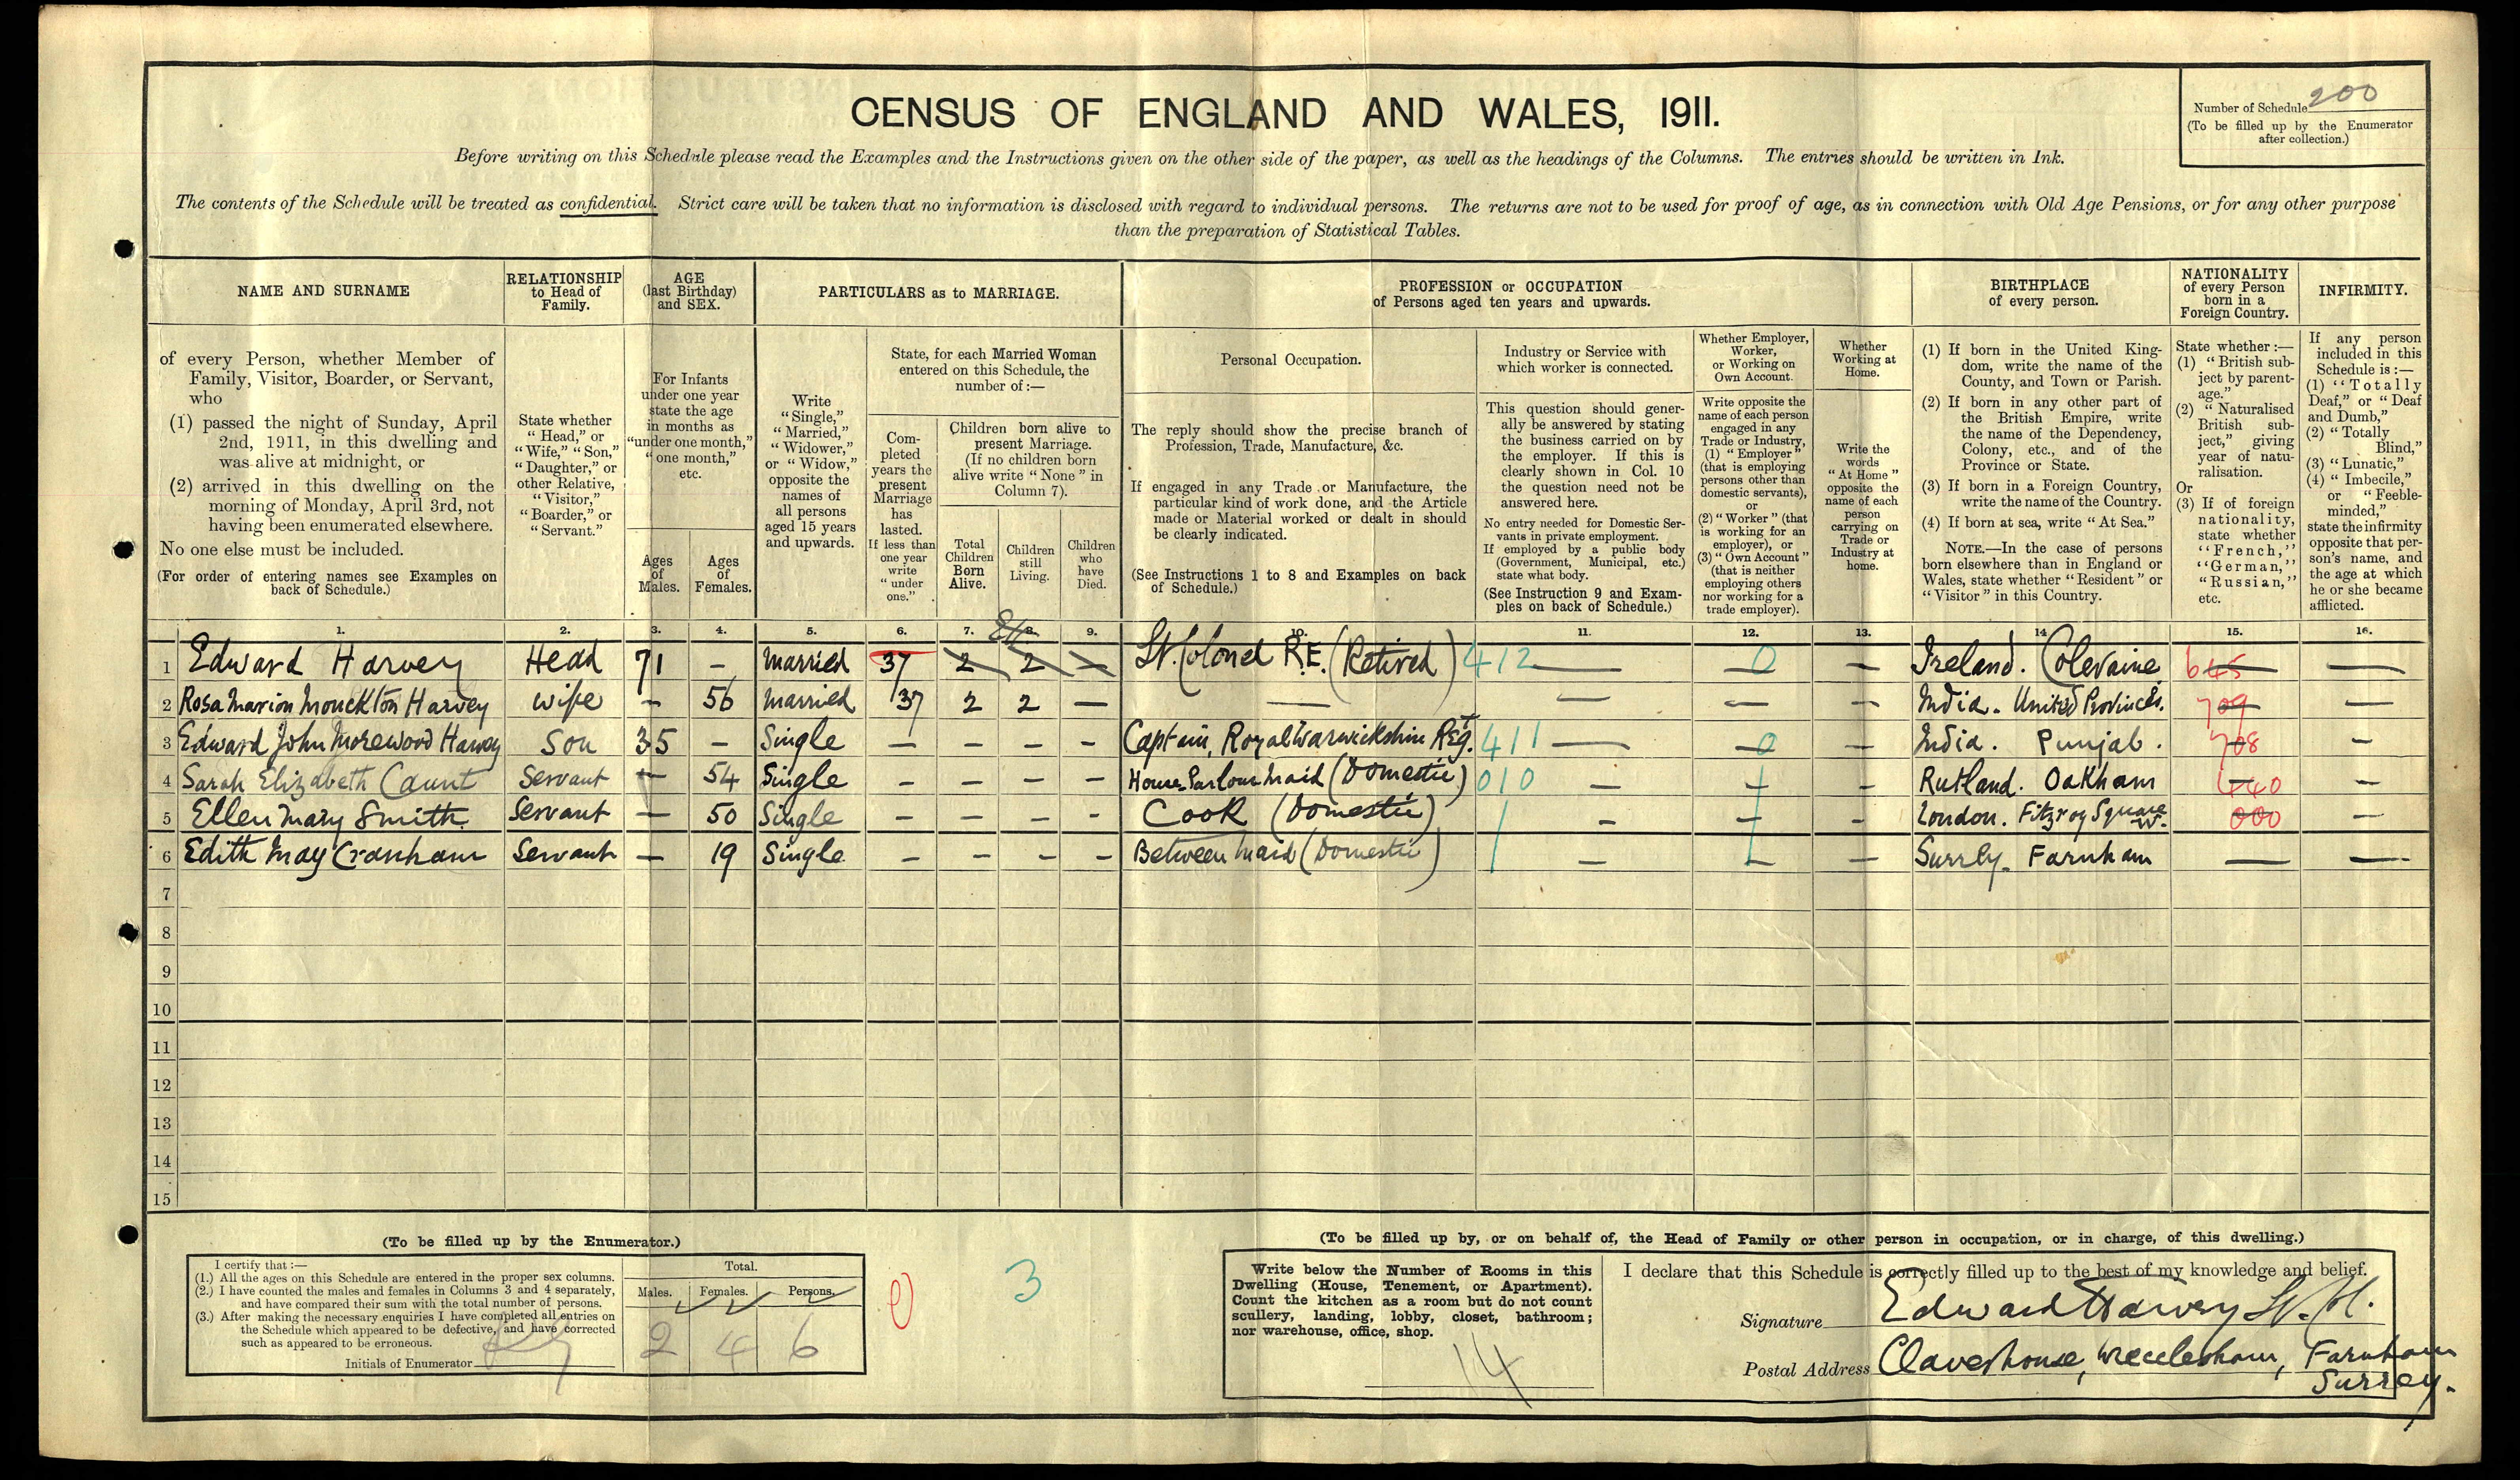 CENSUS OF ENGLAND AND WALES, 1911.
Number of Schedule 200
(To be filled up by the Enumerator
after collection.)
Before writing on this Schedule please read the Examples and the Instructions given on the other side of the paper, as well as the headings of the Columns. The entries should be written in Ink.
The contents of the Schedule will be treated as confidential. Strict care will be taken that no information is disclosed with regard to individual persons. The returns are not to be used for proof of age, as in connection with Old Age Pensions, or for any other purpose
than the preparation of Statistical Tables.
NAME AND SURNAME
of every Person, whether Member of
Family, Visitor, Boarder, or Servant,
who
(1) passed the night of Sunday, April
2nd, 1911, in this dwelling and
was alive at midnight, or
(2) arrived in this dwelling on the
morning of Monday, April 3rd, not
having been enumerated elsewhere.
No one else must be included.
(For order of entering names see Examples on
back of Schedule.)
RELATIONSHIP
to Head of
Family.
State whether
"Head," or
"Wife," "Son,"
"Daughter," or
other Relative,
"Visitor,"
"Boarder," or
"Servant."
AGE
(last Birthday)
and SEX.
For Infants
under one year
state the age
in months as
"under one month,"
"one month,"
etc.
Ages
of
Males.
Ages
of
Females.
PARTICULARS as to MARRIAGE.
Write
"Single,"
"Married,"
"Widower,"
or "Widow,"
opposite the
names of
all persons
aged 15 years
and upwards.
State, for each Married Woman
entered on this Schedule, the
number of:—
Com-
pleted
years the
present
Marriage
has
lasted.
If less than
one year
write
"under
one."
Children born alive to
present Marriage.
(If no children born
alive write "None" in
Column 7).
Total
Children
Born
Alive.
Children
still
Living.
Children
who
have
Died.
PROFESSION or OCCUPATION
of Persons aged ten years and upwards.
Personal Occupation.
The reply should show the precise branch of
Profession, Trade, Manufacture, &c.
If engaged in any Trade or Manufacture, the
particular kind of work done, and the Article
made or Material worked or dealt in should
be clearly indicated.
(See Instructions 1 to 8 and Examples on back
of Schedule.)
Industry or Service with
which worker is connected.
This question should gener-
ally be answered by stating
the business carried on by
the employer. If this is
clearly shown in Col. 10
the question need not be
answered here.
No entry needed for Domestic Ser-
vants in private employment.
If employed by a public body
(Government, Municipal, etc.)
state what body.
(See Instruction 9 and Exam-
ples on back of Schedule.)
Whether Employer,
Worker,
or Working on
Own Account.
Write opposite the
name of each person
engaged in any
Trade or Industry,
(1) "Employer"
(that is employing
persons other than
domestic servants),
or
(2) "Worker" (that
is working for an
employer), or
(3) "Own Account"
(that is neither
employing others
nor working for a
trade employer).
Whether
Working at
Home.
Write the
words
"At Home"
opposite the
name of each
person
carrying on
Trade or
Industry at
home.
BIRTHPLACE
of every person.
(1) If born in the United King-
dom, write the name of the
County, and Town or Parish.
(2) If born in any other part of
the British Empire, write
the name of the Dependency,
Colony, etc., and of the
Province or State.
(3) If born in a Foreign Country,
write the name of the Country.
(4) If born at sea, write "At Sea."
NOTE.—In the case of persons
born elsewhere than in England or
Wales, state whether "Resident" or
"Visitor" in this Country.
NATIONALITY
of every Person
born in a
Foreign Country.
State whether:—
(1) "British sub-
ject by parent-
age."
(2) "Naturalised
British sub-
ject," giving
year of natu-
ralisation.
Or
(3) If of foreign
nationality,
state whether
"French,"
"German,"
"Russian,"
etc.
INFIRMITY.
If any person
included in this
Schedule is:—
(1) "Totally
Deaf," or "Deaf
and Dumb,"
(2) "Totally
Blind,"
(3) "Lunatic,"
(4) "Imbecile,"
or "Feeble-
minded,"
state the infirmity
opposite that per-
son's name, and
the age at which
he or she became
afflicted.
1. 2. 3. 4. 5. 6. 7. 8. 9. 10. 11. 12. 13. 14. 15. 16.
1 Edward Harvey Head 71 — Married 37 2 2 — Lt. Colonel R.E. (Retired) 412 — 0 — Ireland. Coleraine 645 —
2 Rosa Marion Monckton Harvey Wife — 56 Married 37 2 2 — — — — — India. United Provinces. 709 —
3 Edward John Morewood Harvey Son 35 — Single — — — — Captain, Royal Warwickshire Regt. 411 — 0 — India. Punjab. 708 —
4 Sarah Elizabeth Caunt Servant — 54 Single — — — — House Parlour Maid (Domestic) 010 — — — Rutland. Oakham 440 —
5 Ellen Mary Smith Servant — 50 Single — — — — Cook (Domestic) — — — London. Fitzroy Square W. 000 —
6 Edith May Cranham Servant — 19 Single — — — — Between Maid (Domestic) — — — Surrey. Farnham — —
7
8
9
10
11
12
13
14
15
(To be filled up by the Enumerator.)
I certify that:—
(1.) All the ages on this Schedule are entered in the proper sex columns.
(2.) I have counted the males and females in Columns 3 and 4 separately,
and have compared their sum with the total number of persons.
(3.) After making the necessary enquiries I have completed all entries on
the Schedule which appeared to be defective, and have corrected
such as appeared to be erroneous.
Initials of Enumerator
Total.
Males. Females. Persons.
2 4 6
3
(To be filled up by, or on behalf of, the Head of Family or other person in occupation, or in charge, of this dwelling.)
Write below the Number of Rooms in this
Dwelling (House, Tenement, or Apartment).
Count the kitchen as a room but do not count
scullery, landing, lobby, closet, bathroom;
nor warehouse, office, shop.
14
I declare that this Schedule is correctly filled up to the best of my knowledge and belief.
Signature Edward Harvey Lt. Col.
Postal Address Claverhouse, Wrecclesham, Farnham
Surrey.